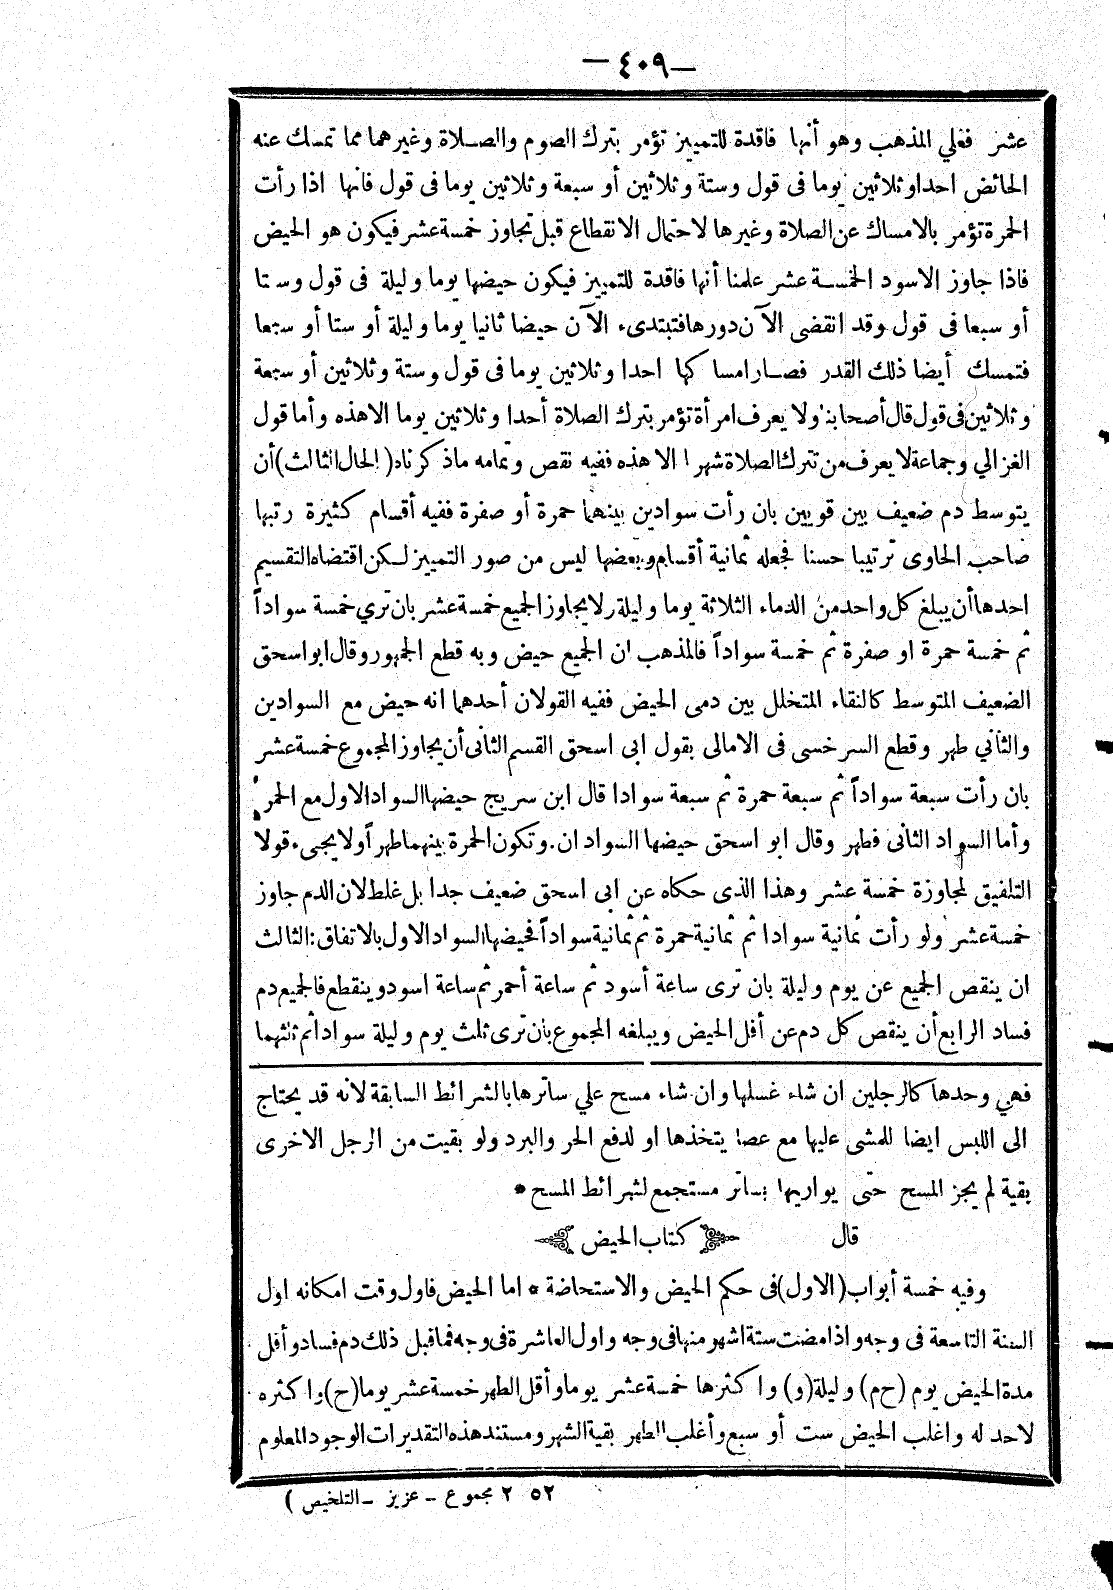 — ٤٠٩ —
عشر فعلي المذهب وهو أنها فاقدة للتمييز تؤمر بترك الصوم والصلاة وغيرهما مما تمسك عنه
الحائض احدا وثلاثين يوما فى قول وستة وثلاثين أو سبعة وثلاثين يوما فى قول فانها اذا رأت
الحمرة تؤمر بالامساك عن الصلاة وغيرها لاحتمال الانقطاع قبل تجاوز خمسة عشر فيكون هو الحيض
فاذا جاوز الاسود الخمسة عشر علمنا أنها فاقدة للتمييز فيكون حيضها يوما وليلة فى قول وستا
أو سبعا فى قول وقد انقضى الآن دورها فتبتدىء الآن حيضا ثانيا يوما وليلة أو ستا أو سبعا
فتمسك أيضا ذلك القدر فصار امساكها احدا وثلاثين يوما فى قول وستة وثلاثين أو سبعة
وثلاثين فى قول قال أصحابنا ولا يعرف امرأة تؤمر بترك الصلاة أحدا وثلاثين يوما الا هذه وأما قول
الغزالي وجماعة لا يعرف من تترك الصلاة شهرا الا هذه ففيه نقص وتمامه ماذكرناه (الحال الثالث) أن
يتوسط دم ضعيف بين قويين بان رأت سوادين بينهما حمرة أو صفرة ففيه أقسام كثيرة رتبها
صاحب الحاوى ترتيبا حسنا فجعله ثمانية أقسام وبعضها ليس من صور التمييز لكن اقتضاه التقسيم
احدها أن يبلغ كل واحد من الدماء الثلاثة يوما وليلة ولا يجاوز الجميع خمسة عشر بان تري خمسة سواداً
ثم خمسة حمرة او صفرة ثم خمسة سواداً فالمذهب ان الجميع حيض وبه قطع الجمهور وقال ابو اسحق
الضعيف المتوسط كالنقاء المتخلل بين دمى الحيض ففيه القولان أحدهما انه حيض مع السوادين
والثاني طهر وقطع السرخسى فى الامالى بقول ابى اسحق القسم الثانى أن يجاوز المجموع خمسة عشر
بان رأت سبعة سواداً ثم سبعة حمرة ثم سبعة سوادا قال ابن سريج حيضها السواد الاول مع الحمرة
وأما السواد الثانى فطهر وقال ابو اسحق حيضها السوادان . وتكون الحمرة بينهما طهراً ولا يجىء قولا
التلفيق لمجاوزة خمسة عشر وهذا الذى حكاه عن ابى اسحق ضعيف جدا بل غلط لان الدم جاوز
خمسة عشر ولو رأت ثمانية سوادا ثم ثمانية حمرة ثم ثمانية سواداً فحيضها السواد الاول بالاتفاق : الثالث
ان ينقص الجميع عن يوم وليلة بان ترى ساعة أسود ثم ساعة أحمر ثم ساعة اسود وينقطع فالجميع دم
فساد الرابع أن ينقص كل دم عن أقل الحيض ويبلغه المجموع بان ترى ثلث يوم وليلة سوادا ثم ثلثهما
فهي وحدها كالرجلين ان شاء غسلها وان شاء مسح علي ساترها بالشرائط السابقة لانه قد يحتاج
الى اللبس ايضا للمشى عليها مع عصا يتخذها او لدفع الحر والبرد ولو بقيت من الرجل الاخرى
بقية لم يجز المسح حتى يواريها بساتر مستجمع لشرائط المسح *
قال كتاب الحيض
وفيه خمسة أبواب (الاول) فى حكم الحيض والاستحاضة * اما الحيض فاول وقت امكانه اول
السنة التاسعة فى وجه واذا مضت ستة اشهر منها فى وجه واول العاشرة فى وجه فما قبل ذلك دم فساد وأقل
مدة الحيض يوم (ح م) وليلة (و) واكثرها خمسة عشر يوما وأقل الطهر خمسة عشر يوما (ح) واكثره
لا حد له واغلب الحيض ست أو سبع وأغلب الطهر بقية الشهر ومستند هذه التقديرات الوجود المعلوم
٥٢ ٢ مجموع – عزيز – التلخيص )